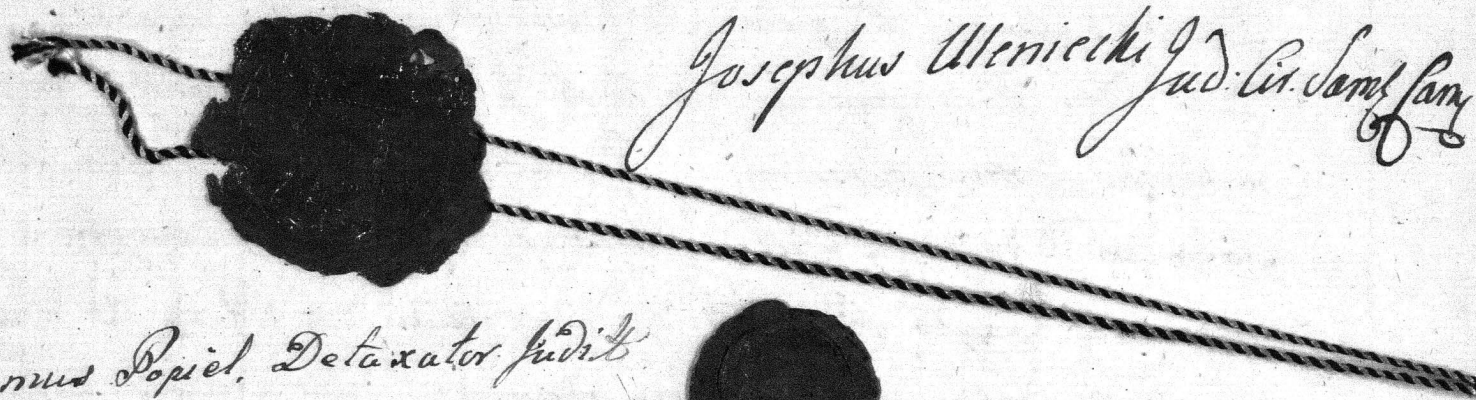 Josephus Uleniecki Jud: Cir. Sam
mus Popiel. Detaxator Judit